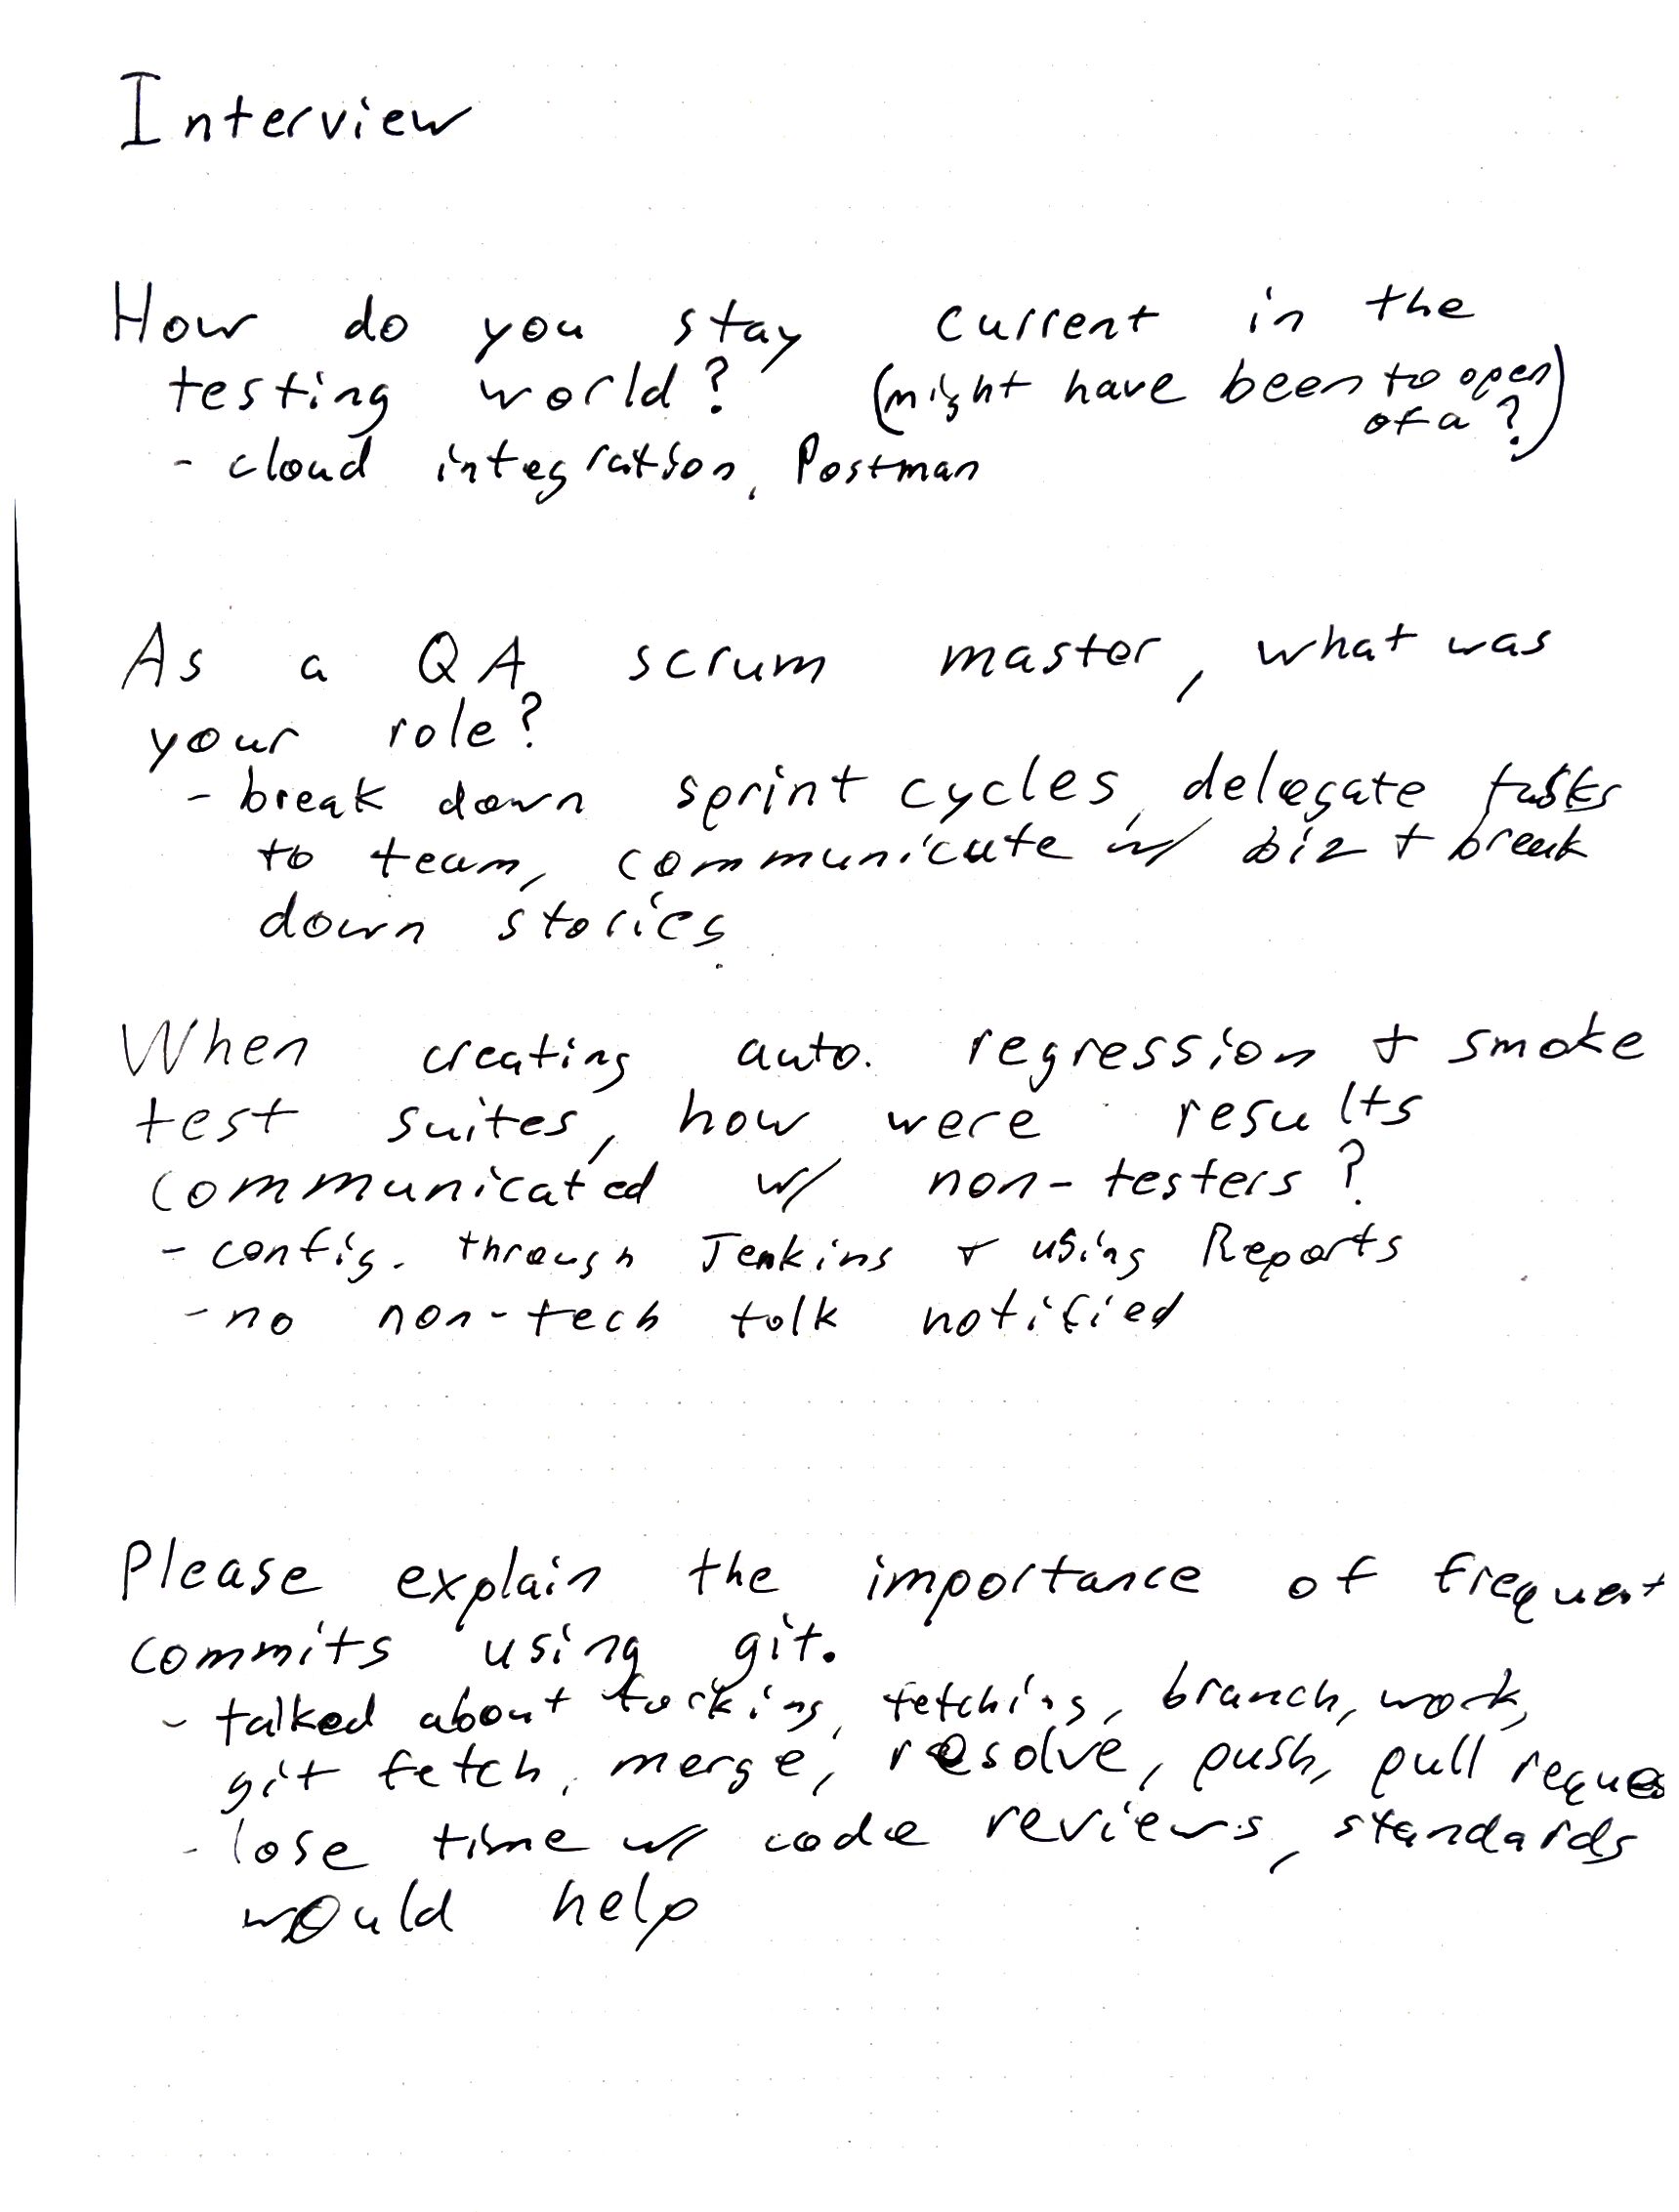 Interview
How do you stay current in the
testing world? (might have been to open
of a ?)
- cloud integration, Postman
As a QA scrum master, what was
your role?
- break down sprint cycles, delegate tasks
to team, communicate w/ biz + break
down stories
When creating auto. regression + smoke
test suites, how were results
communicated w/ non-testers?
- config. through Jenkins + using Reports
- no non-tech folk notified
Please explain the importance of frequent
commits using git.
- talked about forking, fetching, branch, work,
git fetch, merge, resolve, push, pull reques
- lose time w/ code reviews, standards
would help